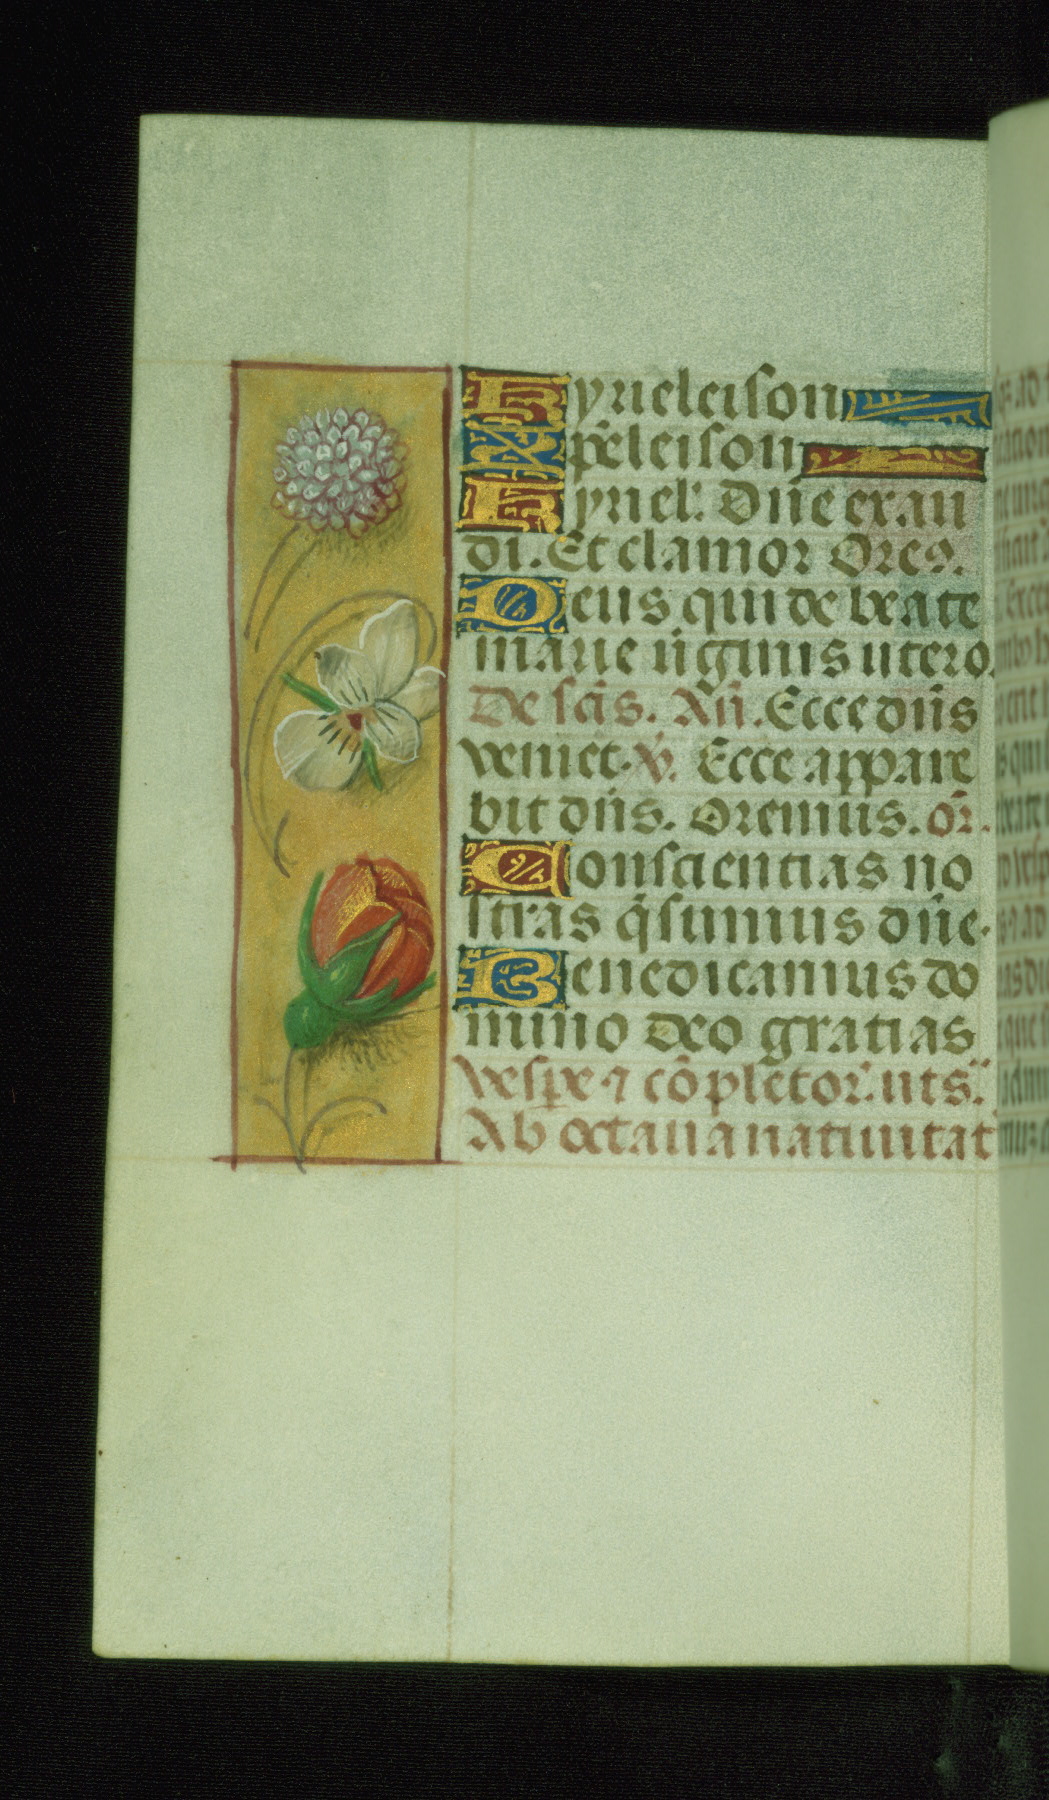 Kyrieleison
Xp̄eleison
Kyriel'. Dn̄e exau
di. Et clamor Ores.
Deus qui de beate
marie ūginis utero.
De scīs. An̄. Ecce dn̄s
veniet. V̄. Ecce appare
bit dn̄s. Oremus. or̄.
Conscientias no
stras q̄sumus dn̄e.
Benedicamus do
mino deo gratias
Vesꝑe ⁊ cōpletor. uts.
Ab octaua natiuitat